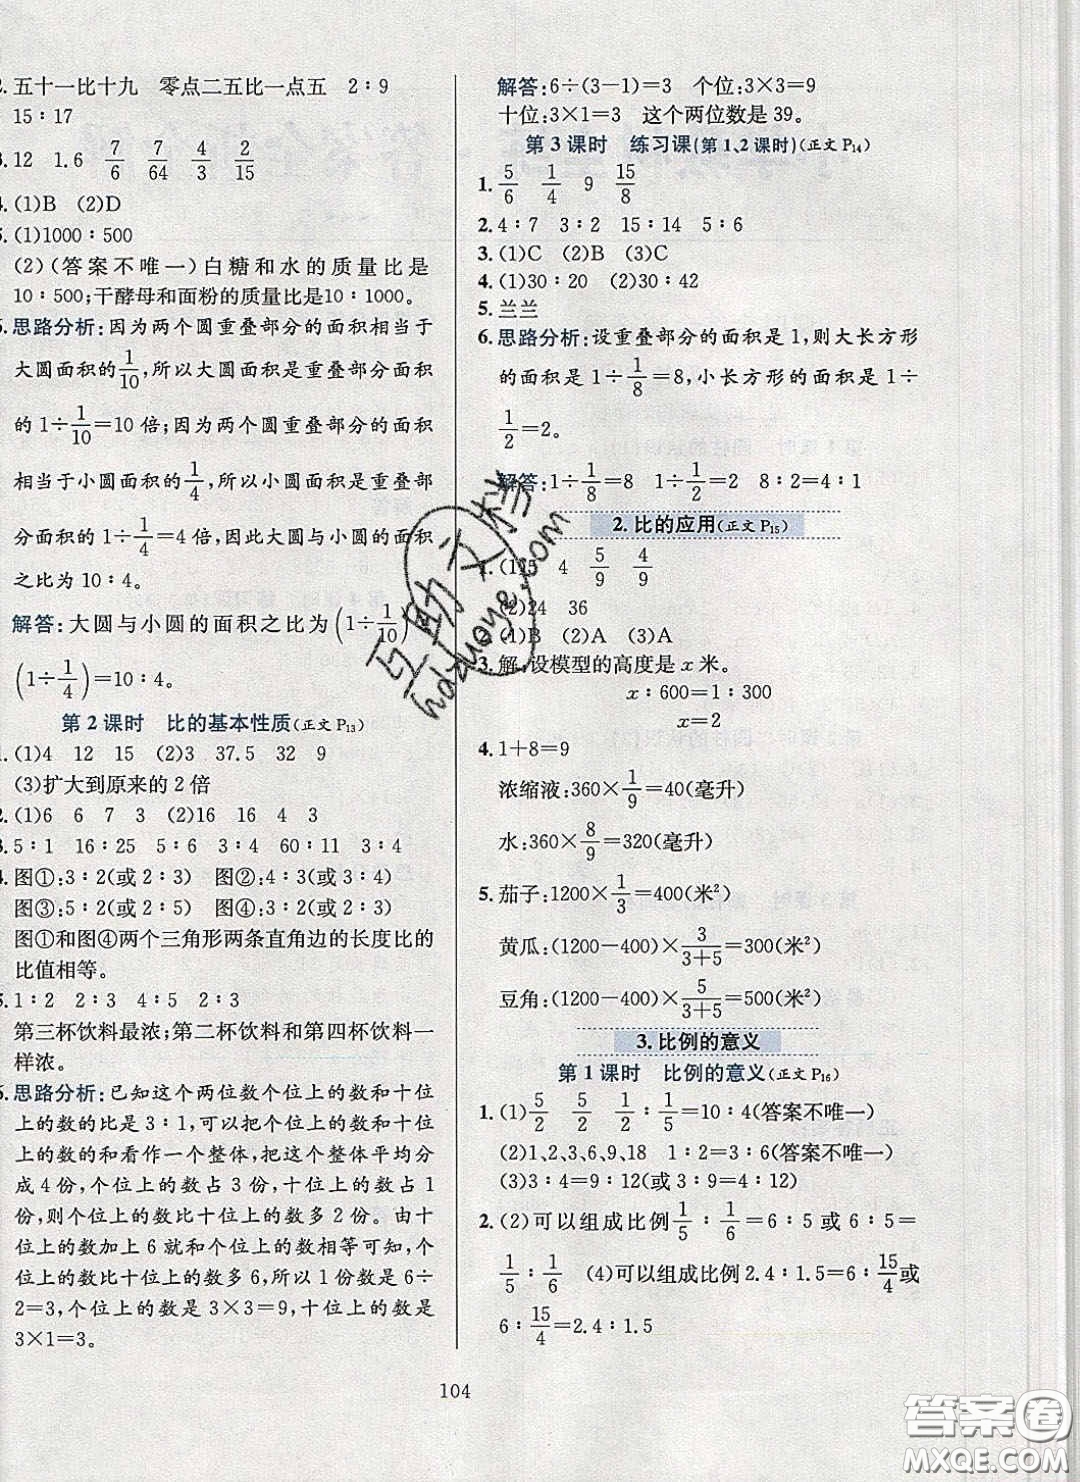 2. 五十一比十九 零点二五比一点五 2∶9
15∶17
3. 12 1.6 7/6 7/64 4/3 2/15
4. (1)B (2)D
5. (1)1000∶500
(2)(答案不唯一)白糖和水的质量比是
10∶500;干酵母和面粉的质量比是10∶1000。
6. 思路分析:因为两个圆重叠部分的面积相当于
大圆面积的1/10,所以大圆面积是重叠部分面积
的1÷1/10=10倍;因为两个圆重叠部分的面积
相当于小圆面积的1/4,所以小圆面积是重叠部
分面积的1÷1/4=4倍,因此大圆与小圆的面积
之比为10∶4。
解答:大圆与小圆的面积之比为(1÷1/10)∶
(1÷1/4)=10∶4。
第2课时 比的基本性质(正文P13)
1. (1)4 12 15 (2)3 37.5 32 9
(3)扩大到原来的2倍
2. (1)6 6 7 3 (2)16 16 4 3
3. 5∶1 16∶25 5∶6 3∶4 60∶11 3∶4
4. 图①:3∶2(或2∶3) 图②:4∶3(或3∶4)
图③:5∶2(或2∶5) 图④:3∶2(或2∶3)
图①和图④两个三角形两条直角边的长度比的
比值相等。
5. 1∶2 2∶3 4∶5 2∶3
第三杯饮料最浓;第二杯饮料和第四杯饮料一
样浓。
6. 思路分析:已知这个两位数个位上的数和十位
上的数的比是3∶1,可以把个位上的数和十位
上的数的和看作一个整体,把这个整体平均分
成4份,个位上的数占3份,十位上的数占1
份,则个位上的数比十位上的数多2份。由十
位上的数加上6就和个位上的数相等可知,个
位上的数比十位上的数多6,所以1份数是6÷
2=3,个位上的数是3×3=9,十位上的数是
3×1=3。
解答:6÷(3-1)=3 个位:3×3=9
十位:3×1=3 这个两位数是39。
第3课时 练习课(第1、2课时)(正文P14)
1. 5/6 1/4 9 15/8
2. 4∶7 3∶2 15∶14 5∶6
3. (1)C (2)B (3)C
4. (1)30∶20 (2)30∶42
5. 兰兰
6. 思路分析:设重叠部分的面积是1,则大长方形
的面积是1÷1/8=8,小长方形的面积是1÷
1/2=2。
解答:1÷1/8=8 1÷1/2=2 8∶2=4∶1
2. 比的应用(正文P15)
1. (1)5 4 5/9 4/9
(2)24 36
2. (1)B (2)A (3)A
3. 解:设模型的高度是x米。
x∶600=1∶300
x=2
4. 1+8=9
浓缩液:360×1/9=40(毫升)
水:360×8/9=320(毫升)
5. 茄子:1200×1/3=400(米²)
黄瓜:(1200-400)×3/(3+5)=300(米²)
豆角:(1200-400)×5/(3+5)=500(米²)
3. 比例的意义
第1课时 比例的意义(正文P16)
1. (1)5/2 5/2 1/2∶1/5=10∶4(答案不唯一)
(2)1、2、3、6、9、18 1∶2=3∶6(答案不唯一)
(3)3∶4=9∶12(或3∶9=4∶12)
2. (2)可以组成比例1/5∶1/6=6∶5或6∶5=
1/5∶1/6 (4)可以组成比例2.4∶1.5=6∶15/4或
6∶15/4=2.4∶1.5
104
互助文档
hdzuoye.com
答案圈
MXQE.COM